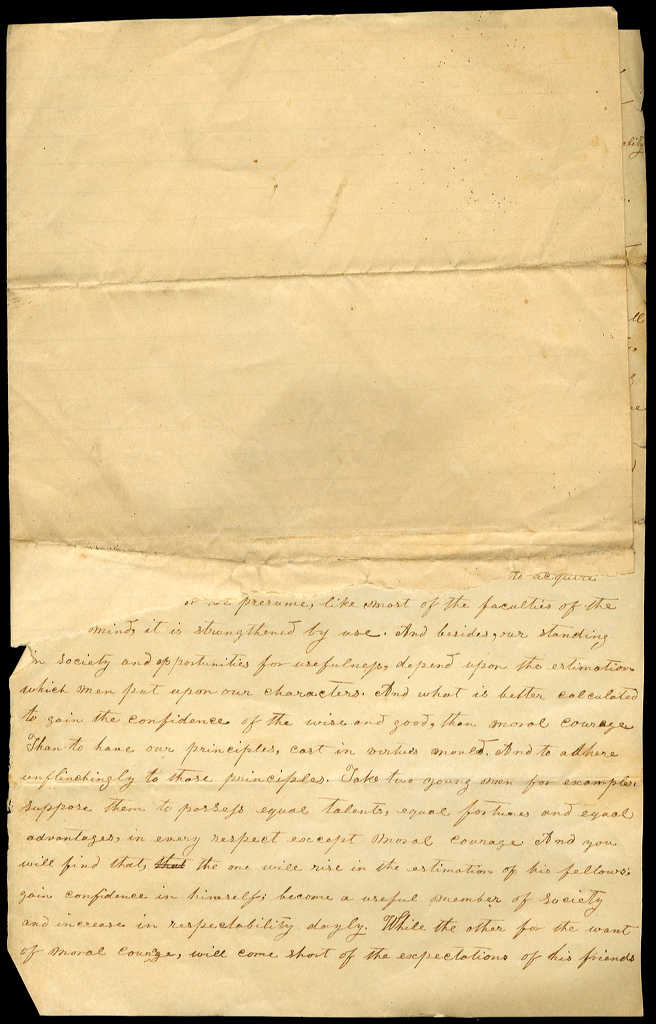 to acquire
or we presume, like most of the faculties of the
mind, it is strengthened by use. And besides, our standing
in society and opportunities for usefulness, depend upon the estimation
which men put upon our characters. And what is better calculated
to gain the confidence of the wise and good, than moral courage
Than to have our principles, cast in virties mould. And to adhere
unflinchingly to those principles. Take two young men for example.
suppose them to possess equal talents, equal fortunes and equal
advantages, in every respect except Moral courage And you
will find that, that the one will rise in the estimation of his fellows;
gain confidence in himself; become a useful member of society
and increase in respectability dayly. While the other for the want
of Moral courage, will come short of the expectations of his friends
ality